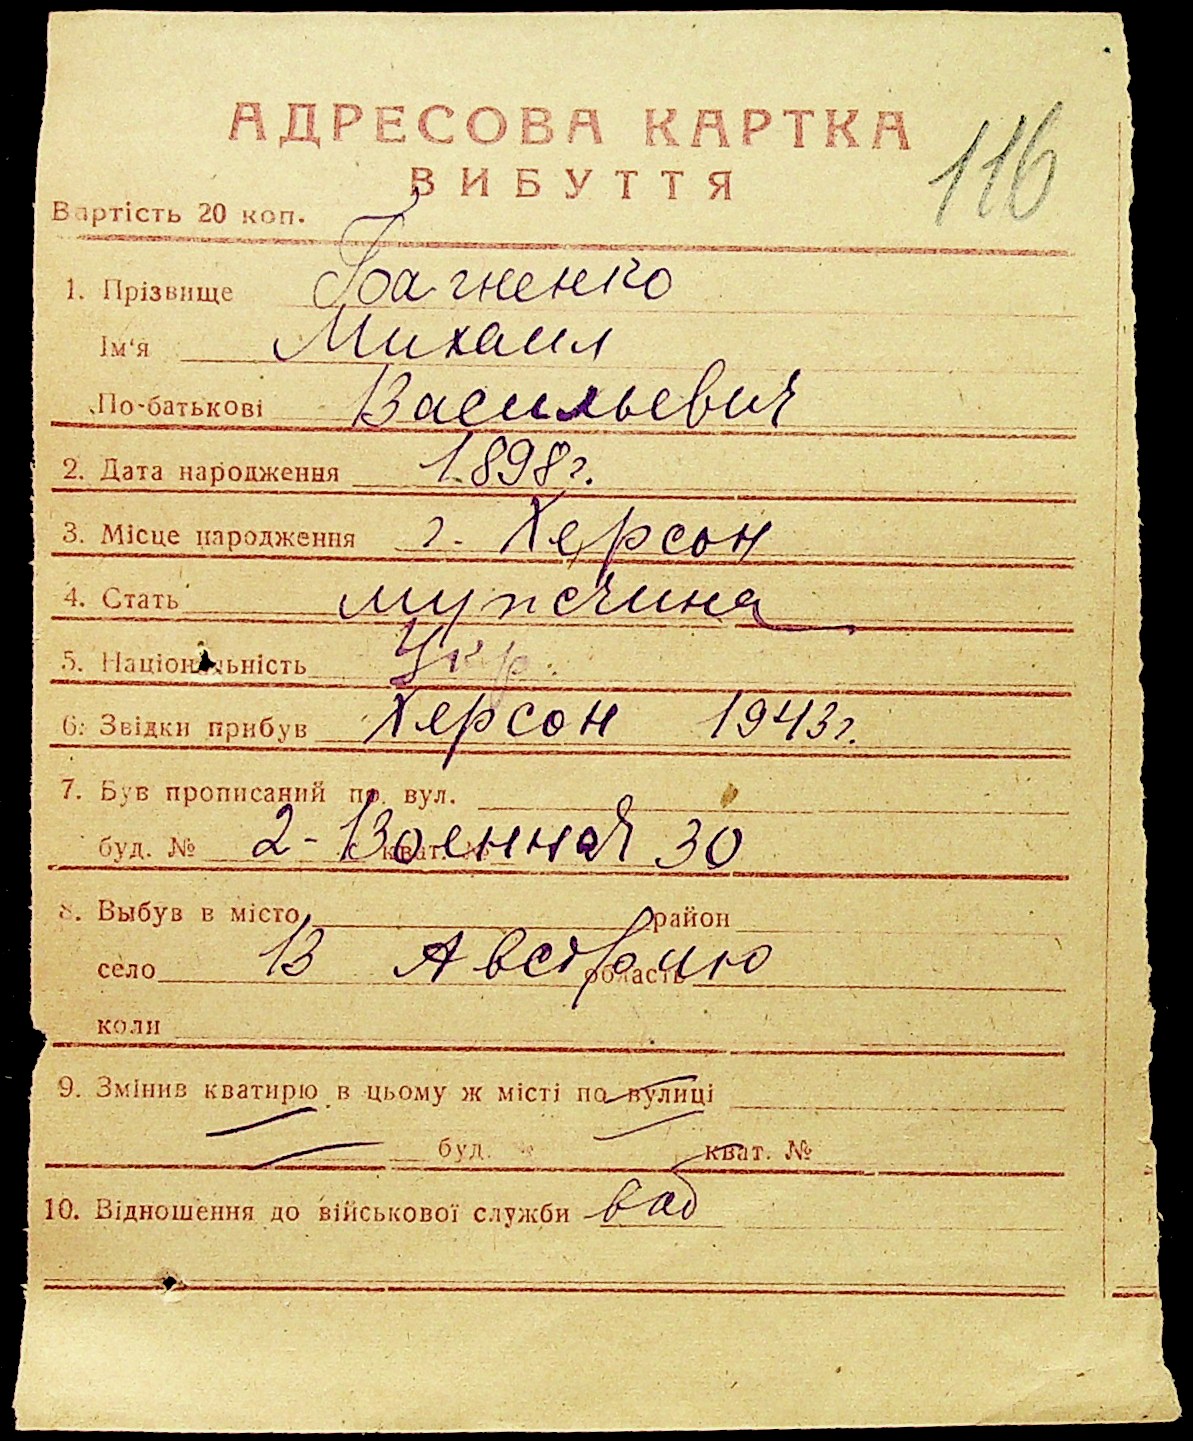 АДРЕСОВА КАРТКА
116
ВИБУТТЯ
Вартість 20 коп.
1. Прізвище
Ім'я Михаил
По-батькові Васильевич
2. Дата народження 1898г.
3. Місце народження г. Херсон
4. Стать мужчина
5. Національність Укр.
6. Звідки прибув Херсон 1943г.
7. Був прописаний по вул.
буд. № кват. № 2-Военной 30
8. Выбув в місто район
село область В Австрию
коли
9. Змінив кватирю в цьому ж місті по вулиці
буд. кват. №
10. Відношення до військової служби